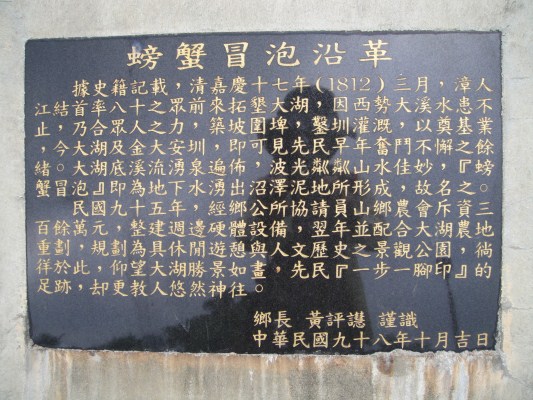 螃蟹冒泡沿革
據史籍記載，清嘉慶十七年(1812)三月，漳人
江結首率八十之眾，前來拓墾大湖，因西勢大溪，水患不
止，乃合眾人之力，築坡圍埤，鑿圳灌溉，以奠基業
緒。今 可見先民早年奮鬥不懈之餘
蟹冒泡』即為 地下水湧出沼澤泥地所形成，故名之。
民國九十五年，週邊經鄉公所協請員山鄉農會斥資三
百餘萬元，整建休閒硬體設備，翌年並配合大湖農地
重劃，規劃為具 大湖 遊憩與人文歷史景觀公園』。徜
徉於此，仰望 勝景如畫，先民『一步一腳印』的
足跡，却更教人悠然神往。
鄉長 黃評譿 謹識
中華民國九十八年十月吉日